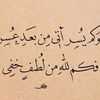 وكم يسر أتى من بعد عسر
فكم لله من لطف خفي